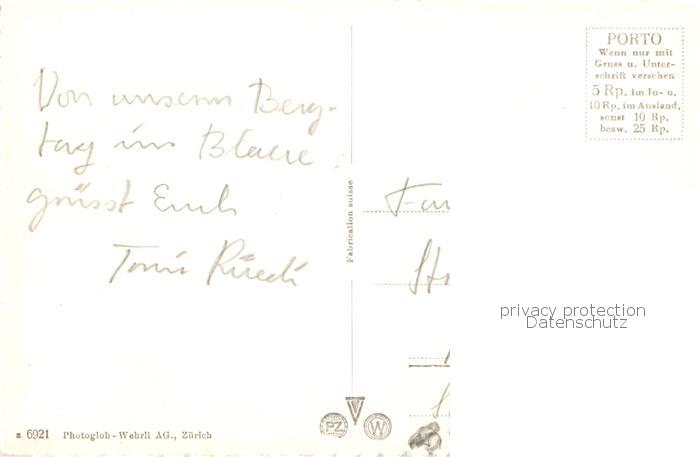 Von unserm Berg-
tag ins Blaue
grüsst Euch
Ruedi
Fabrication suisse
PORTO
Wenn nur mit
Gruss u. Unter-
schrift versehen
5 Rp. im In- u.
10 Rp. im Ausland,
sonst 10 Rp.
bezw. 25 Rp.
privacy protection
Datenschutz
PZ
W
z 6921 Photoglob-Wehrli AG., Zürich